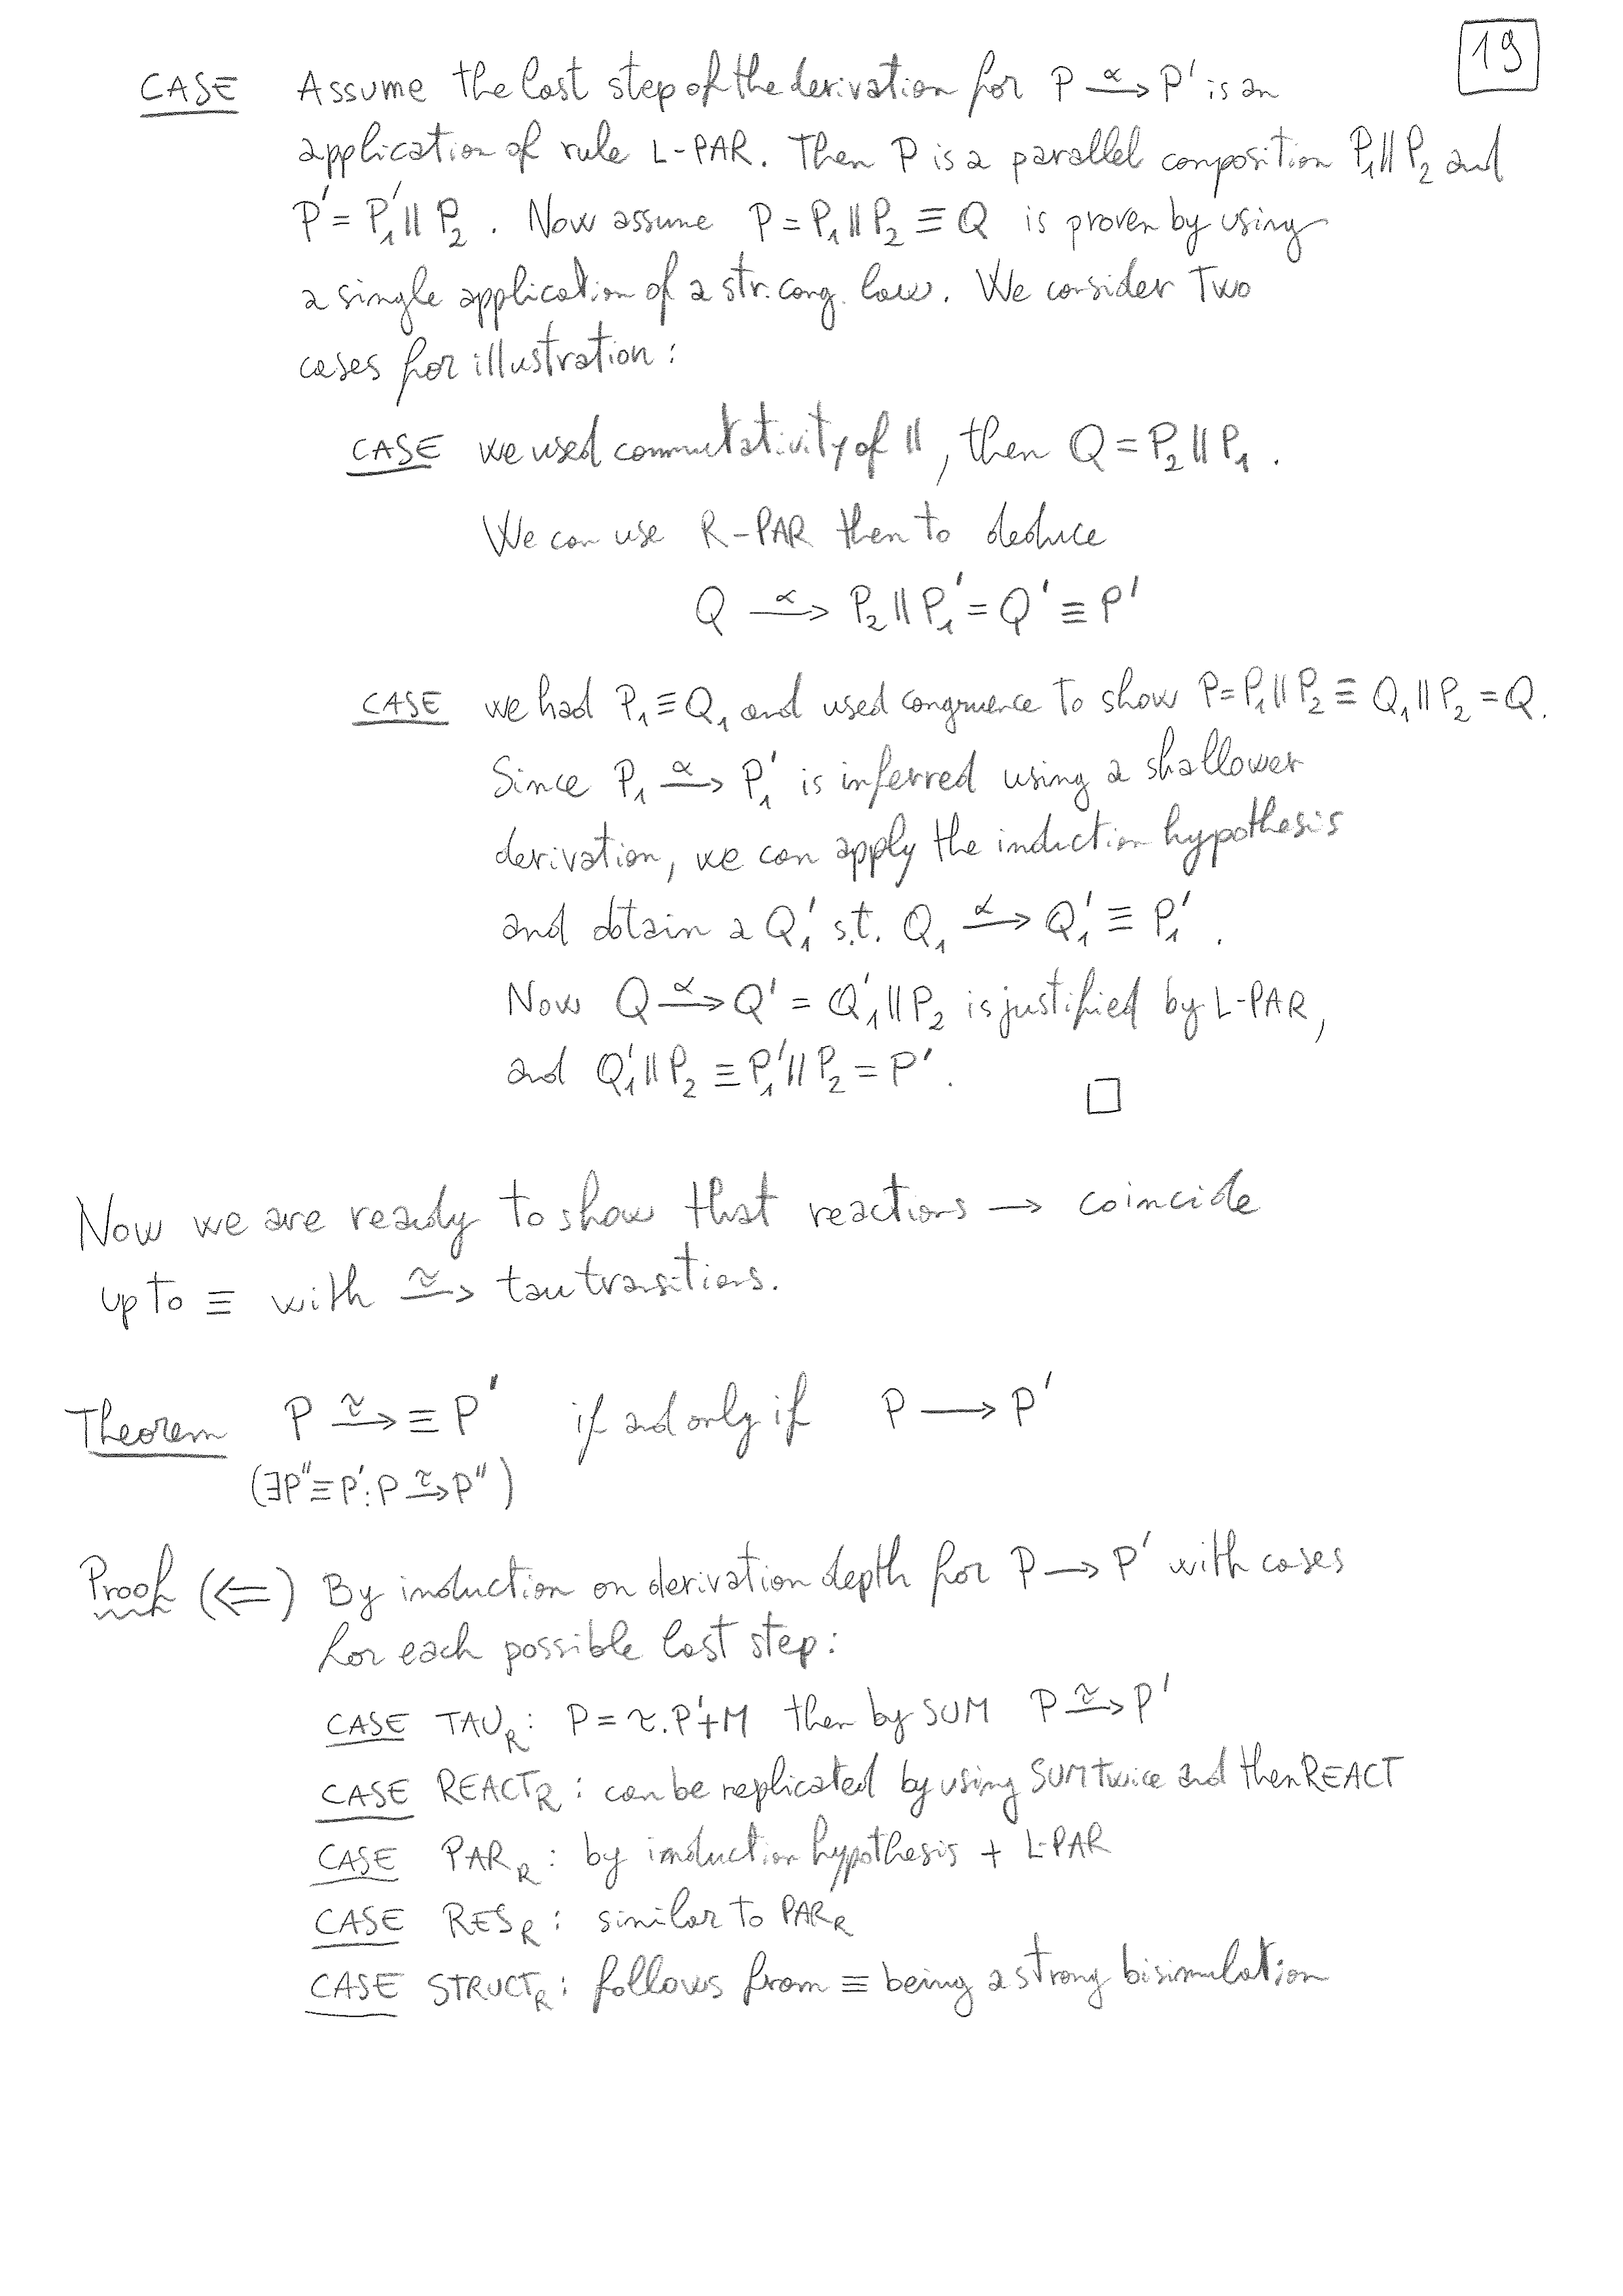 19
CASE Assume the last step of the derivation for P —α→ P' is an
application of rule L-PAR. Then P is a parallel composition P₁||P₂ and
P' = P₁'||P₂. Now assume P = P₁||P₂ ≡ Q is proven by using
a single application of a str. cong. law. We consider two
cases for illustration:
CASE we used commutativity of ||, then Q = P₂||P₁.
We can use R-PAR then to deduce
Q —α→ P₂||P₁' = Q' ≡ P'
CASE we had P₁ ≡ Q₁ and used congruence to show P = P₁||P₂ ≡ Q₁||P₂ = Q.
Since P₁ —α→ P₁' is inferred using a shallower
derivation, we can apply the induction hypothesis
and obtain a Q₁' s.t. Q₁ —α→ Q₁' ≡ P₁'.
Now Q —α→ Q' = Q₁'||P₂ is justified by L-PAR,
and Q₁'||P₂ ≡ P₁'||P₂ = P'. □
Now we are ready to show that reactions → coincide
up to ≡ with —τ→ tau transitions.
Theorem P —τ→ ≡ P' if and only if P → P'
(∃P''≡P': P —τ→ P'')
Proof (⇐) By induction on derivation depth for P → P' with cases
for each possible last step:
CASE TAU_R: P = τ.P'+M then by SUM P —τ→ P'
CASE REACT_R: can be replicated by using SUM twice and then REACT
CASE PAR_R: by induction hypothesis + L-PAR
CASE RES_R: similar to PAR_R
CASE STRUCT_R: follows from ≡ being a strong bisimulation